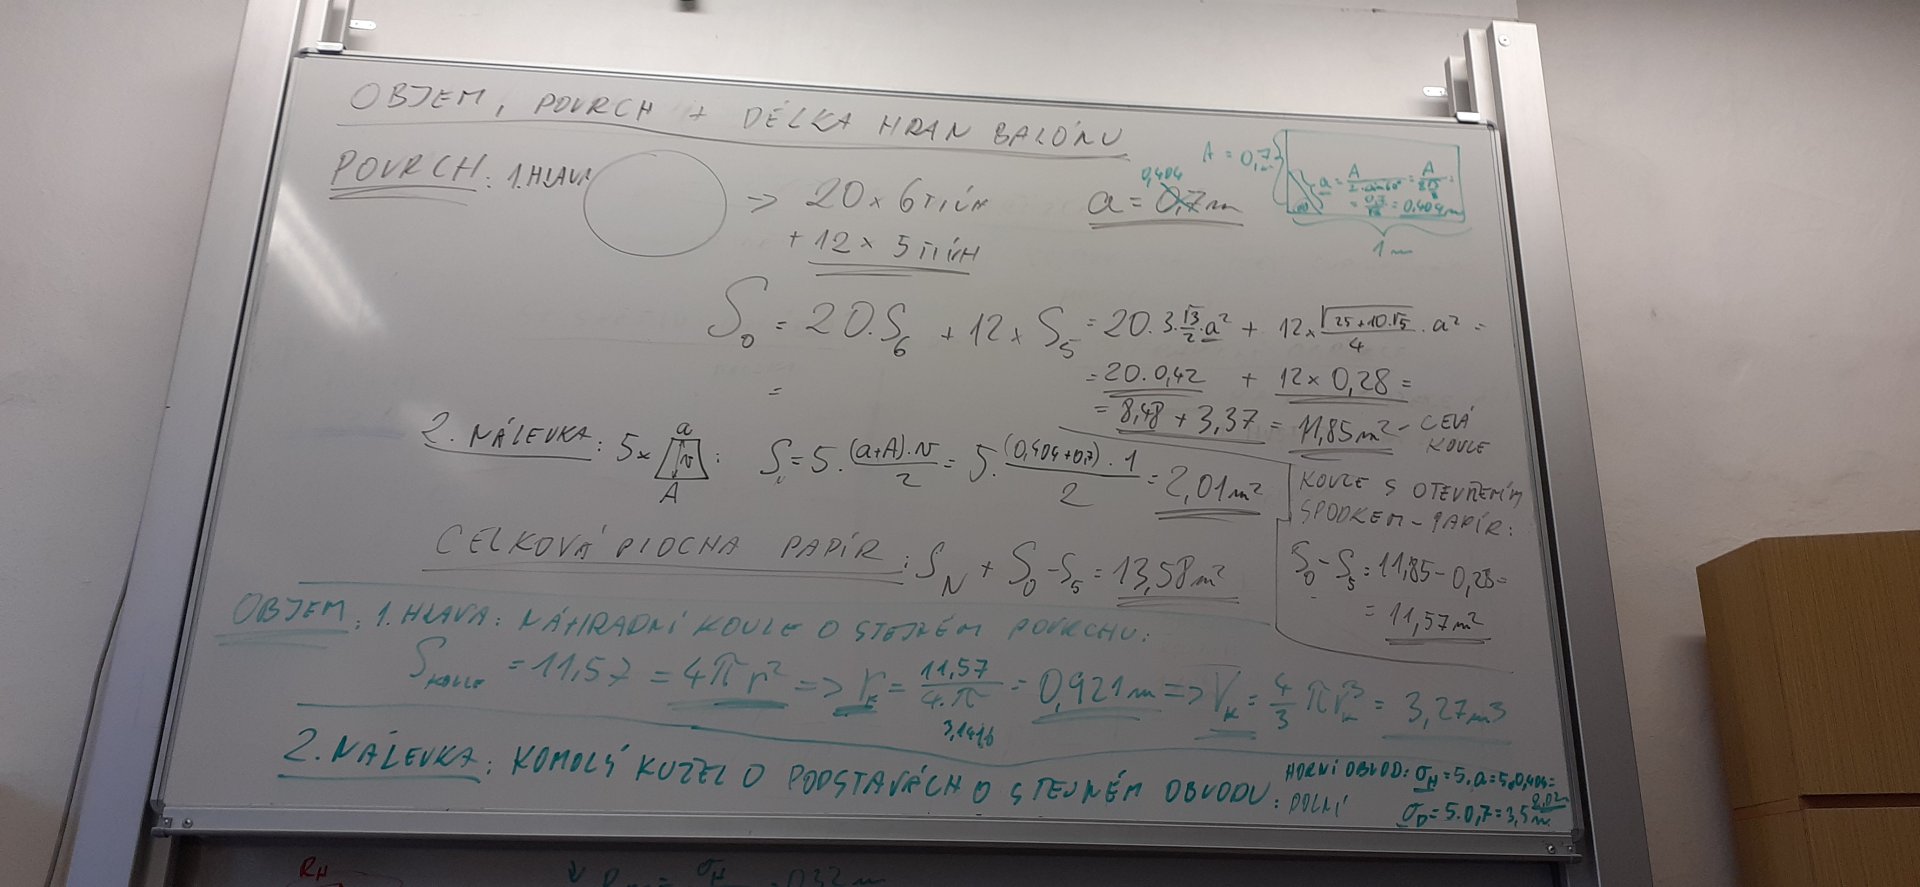 OBJEM, POVRCH + DÉLKA HRAN BALÓNU
POVRCH: 1. HLAVA => 20 × 6TIÚH
+ 12 × 5TIÚH
a = 0,7 m
0,404
A = 0,7 m
a = A / 2·sin60° = A / 2√3/2 =
= 0,7/√3 = 0,404 m
1 m
S₀ = 20·S₆ + 12 × S₅ = 20·3·√3/2·a² + 12 × √25+10·√5 / 4 · a² =
=
= 20·0,42 + 12 × 0,28 =
= 8,48 + 3,37 = 11,85 m² – CELÁ KOULE
2. NÁLEVKA: 5× a v A : S = 5·(a+A)·v / 2 = 5·(0,404+0,7)·1 / 2 = 2,01 m²
KOULE S OTEVŘENÝM
SPODKEM – PAPÍR:
S₀ – S₅ = 11,85 – 0,28 =
= 11,57 m²
CELKOVÁ PLOCHA PAPÍR: S_N + S₀ – S₅ = 13,58 m²
OBJEM: 1. HLAVA: NÁHRADNÍ KOULE O STEJNÉM POVRCHU:
S_KOULE = 11,57 = 4πr² => r_K = 11,57 / 4·π = 0,921 m => V_K = 4/3 πr_K³ = 3,27 m³
3,1416
2. NÁLEVKA: KOMOLÝ KUŽEL O PODSTAVÁCH O STEJNÉM OBVODU:
HORNÍ OBVOD: O_H = 5·a = 5·0,404 =
2,02 m
DOLNÍ O_D = 5·0,7 = 3,5 m
R_H
O_H
= 0,32 m